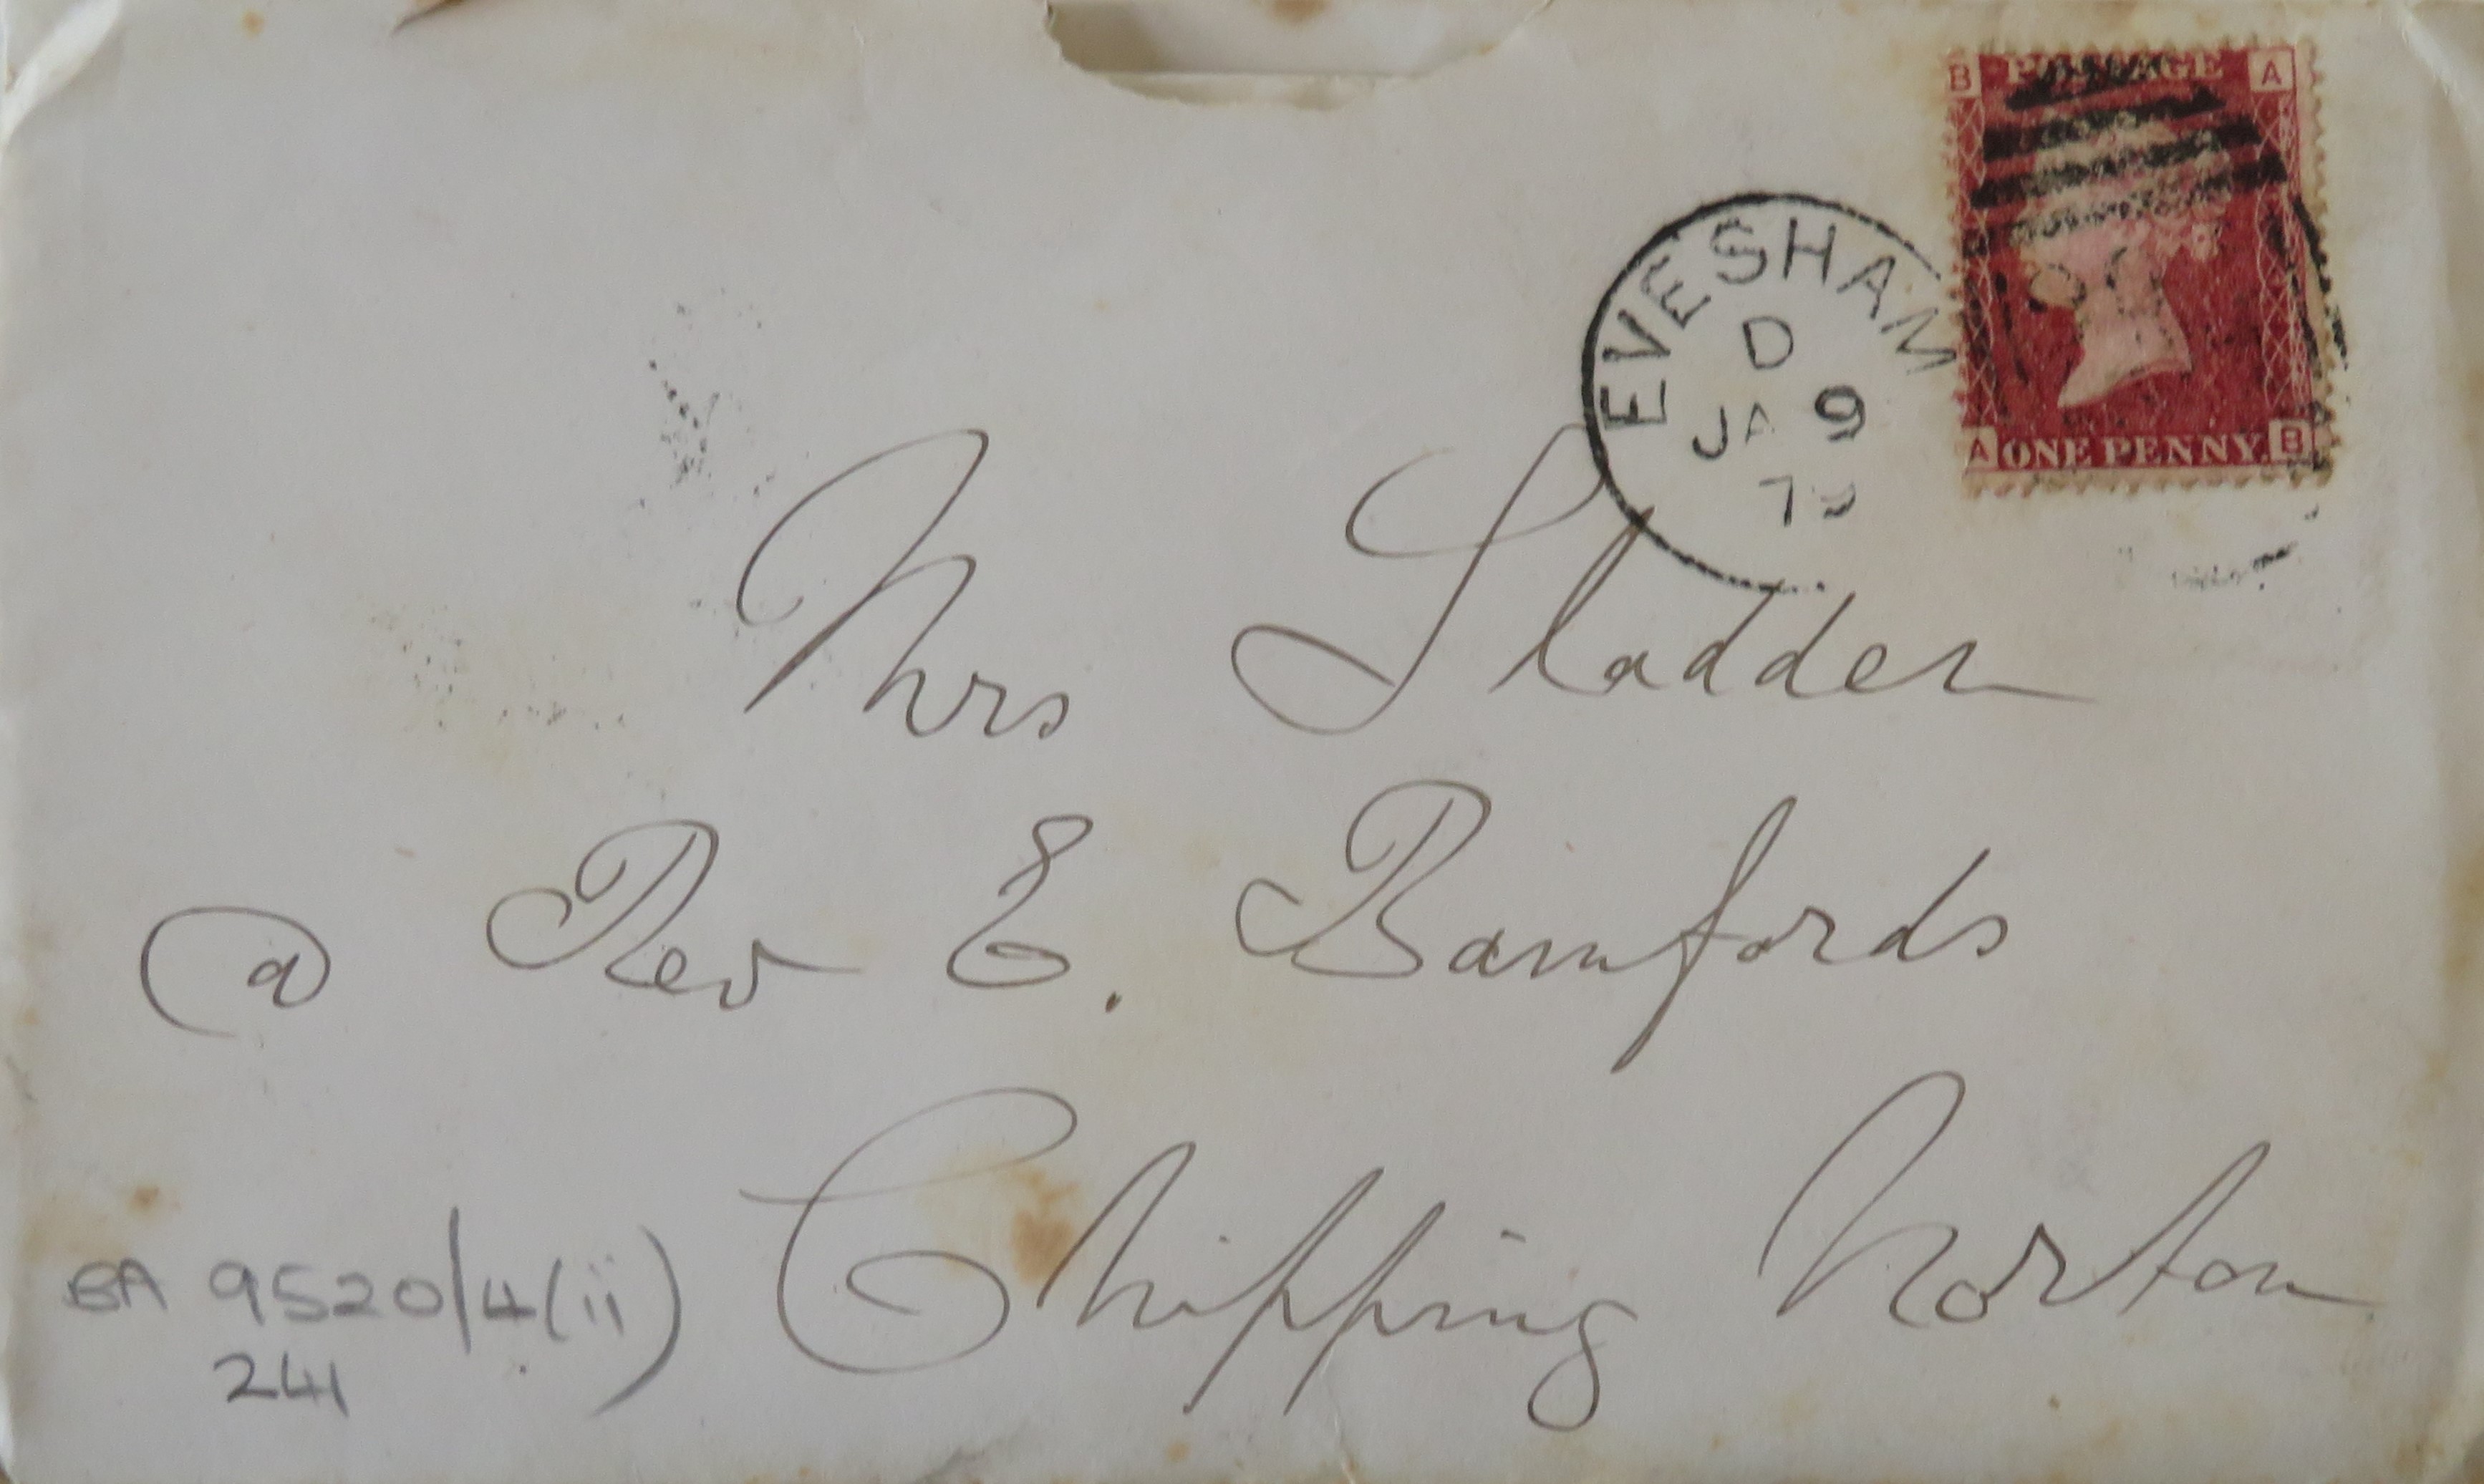 B POSTAGE A
EVESHAM
D
JA 9
79
A ONE PENNY. B
Mrs Sladden
@ Rev E. Bamfords
Chipping Norton
BA 9520/4(ii)
241